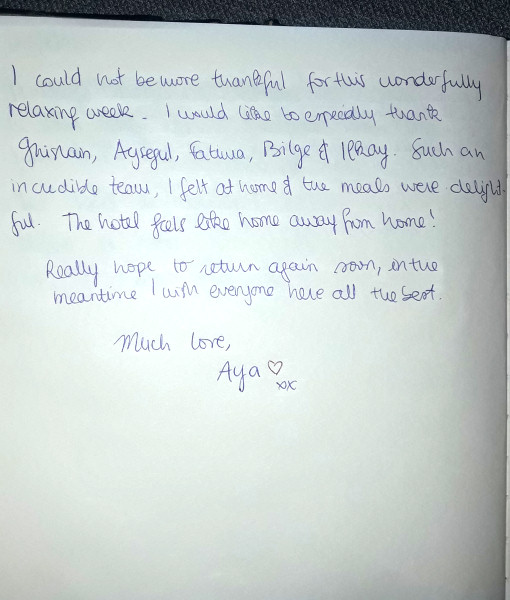 I could not be more thankful for this wonderfully
relaxing week. I would like to especially thank
Ghislain, Aysegul, Fatma, Bilge & Ilkay. Such an
incredible team, I felt at home & the meals were delight-
ful. The hotel feels like home away from home!
Really hope to return again soon, in the
meantime I wish everyone here all the best.
Much love,
Aya ♡
xx